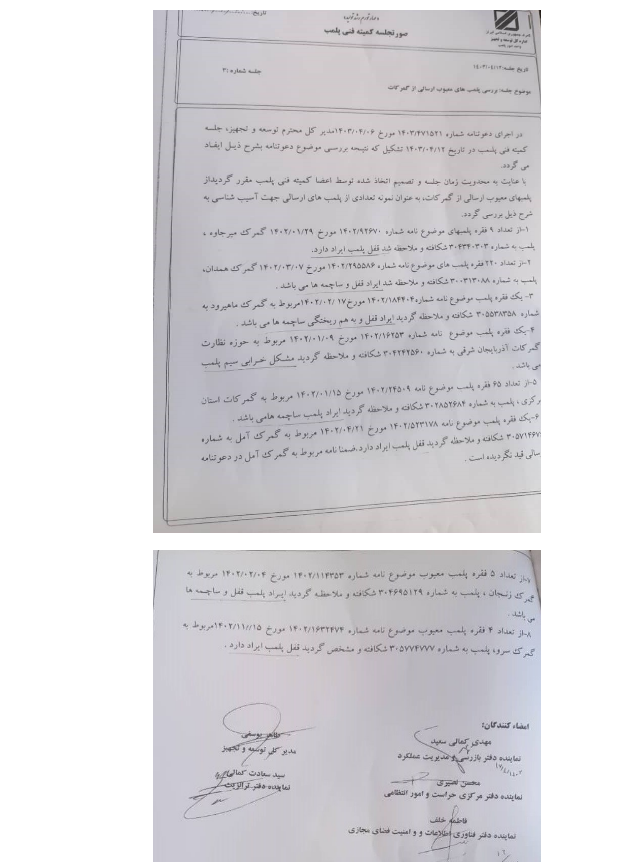 صورتجلسه کمیته فنی پلمب
تاریخ جلسه: ۱۴۰۳/۰۴/۱۲
جلسه شماره ۳۱
موضوع جلسه: بررسی پلمب های معیوب ارسالی از گمرکات
در اجرای دعوتنامه شماره ۱۴۰۳/۴۷۱۵۲۱ مورخ ۱۴۰۳/۰۴/۰۶مدیر کل محترم توسعه و تجهیز، جلسه
کمیته فنی پلمب در تاریخ ۱۴۰۳/۰۴/۱۲ تشکیل که نتیجه بررسی موضوع دعوتنامه بشرح ذیل ایفاد
می گردد.
با عنایت به محدویت زمان جلسه و تصمیم اتخاذ شده توسط اعضا کمیته فنی پلمب مقرر گردیداز
پلمبهای معیوب ارسالی از گمرکات، به عنوان نمونه تعدادی از پلمب های ارسالی جهت آسیب شناسی به
شرح ذیل بررسی گردد.
۱-از تعداد ۹ فقره پلمبهای موضوع نامه شماره ۱۴۰۲/۹۲۶۷۰ مورخ ۱۴۰۲/۰۱/۲۹ گمرک میرجاوه ،
پلمب به شماره ۳۰۴۳۴۰۳۰۳ شکافته و ملاحظه شد قفل پلمب ایراد دارد.
۲-از تعداد ۲۲۰ فقره پلمب های موضوع نامه شماره ۱۴۰۲/۲۹۵۵۸۶ مورخ ۱۴۰۲/۰۳/۰۷ گمرک همدان،
پلمب به شماره ۳۰۰۳۱۳۰۸۸ شکافته و ملاحظه شد ایراد قفل و ساچمه ها می باشد .
۳- یک فقره پلمب موضوع نامه شماره۱۴۰۲/۱۸۴۴۰۴ مورخ ۱۴۰۲/۰۲/۱۷مربوط به گمرک ماهیرود به
شماره ۳۰۵۵۳۸۳۵۸ شکافته و ملاحظه گردید ایراد قفل و به هم ریختگی ساچمه ها می باشد .
۴-یک فقره پلمب موضوع نامه شماره ۱۴۰۲/۱۶۲۵۳ مورخ ۱۴۰۲/۰۱/۰۹ مربوط به حوزه نظارت
گمرکات آذربایجان شرقی به شماره ۳۰۴۲۴۲۵۶۰ شکافته و ملاحظه گردید مشکل خرابی سیم پلمب
می باشد .
۵-از تعداد ۶۵ فقره پلمب موضوع نامه ۱۴۰۲/۲۴۵۰۹ مورخ ۱۴۰۲/۰۱/۱۵ مربوط به گمرکات استان
مرکزی ، پلمب به شماره ۳۰۲۸۵۲۶۸۴ شکافته و ملاحظه گردید ایراد پلمب ساچمه هامی باشد .
۶-یک فقره پلمب موضوع نامه ۱۴۰۲/۵۲۳۱۷۸ مورخ ۱۴۰۲/۰۴/۲۱ مربوط به گمرک آمل به شماره
شکافته و ملاحظه گردید قفل پلمب ایراد دارد.ضمنا نامه مربوط به گمرک آمل در دعوتنامه
قید نگردیده است .
۷-از تعداد ۵ فقره پلمب معیوب موضوع نامه شماره ۱۴۰۲/۱۱۴۳۵۳ مورخ ۱۴۰۲/۰۲/۰۴ مربوط به
گمرک زنجان ، پلمب به شماره ۳۰۴۶۹۵۱۲۹ شکافته و ملاحظه گردید ایراد پلمب قفل و ساچمه ها
می باشد .
۸-از تعداد ۴ فقره پلمب معیوب موضوع نامه شماره ۱۴۰۲/۱۶۳۲۴۷۴ مورخ ۱۴۰۲/۱۱//۱۵مربوط به
گمرک سرو، پلمب به شماره ۳۰۵۷۷۴۷۷۷ شکافته و مشخص گردید قفل پلمب ایراد دارد .
امضاء کنندگان:
مهدی کمالی سعید
نماینده دفتر بازرسی و مدیریت عملکرد
طاهر یوسفی
مدیر کل توسعه و تجهیز
محسن نصیری
نماینده دفتر مرکزی حراست و امور انتظامی
سید سعادت کمالی
نماینده دفتر ترانزیت
فاطمه خلف
نماینده دفتر فناوری اطلاعات و و امنیت فضای مجازی